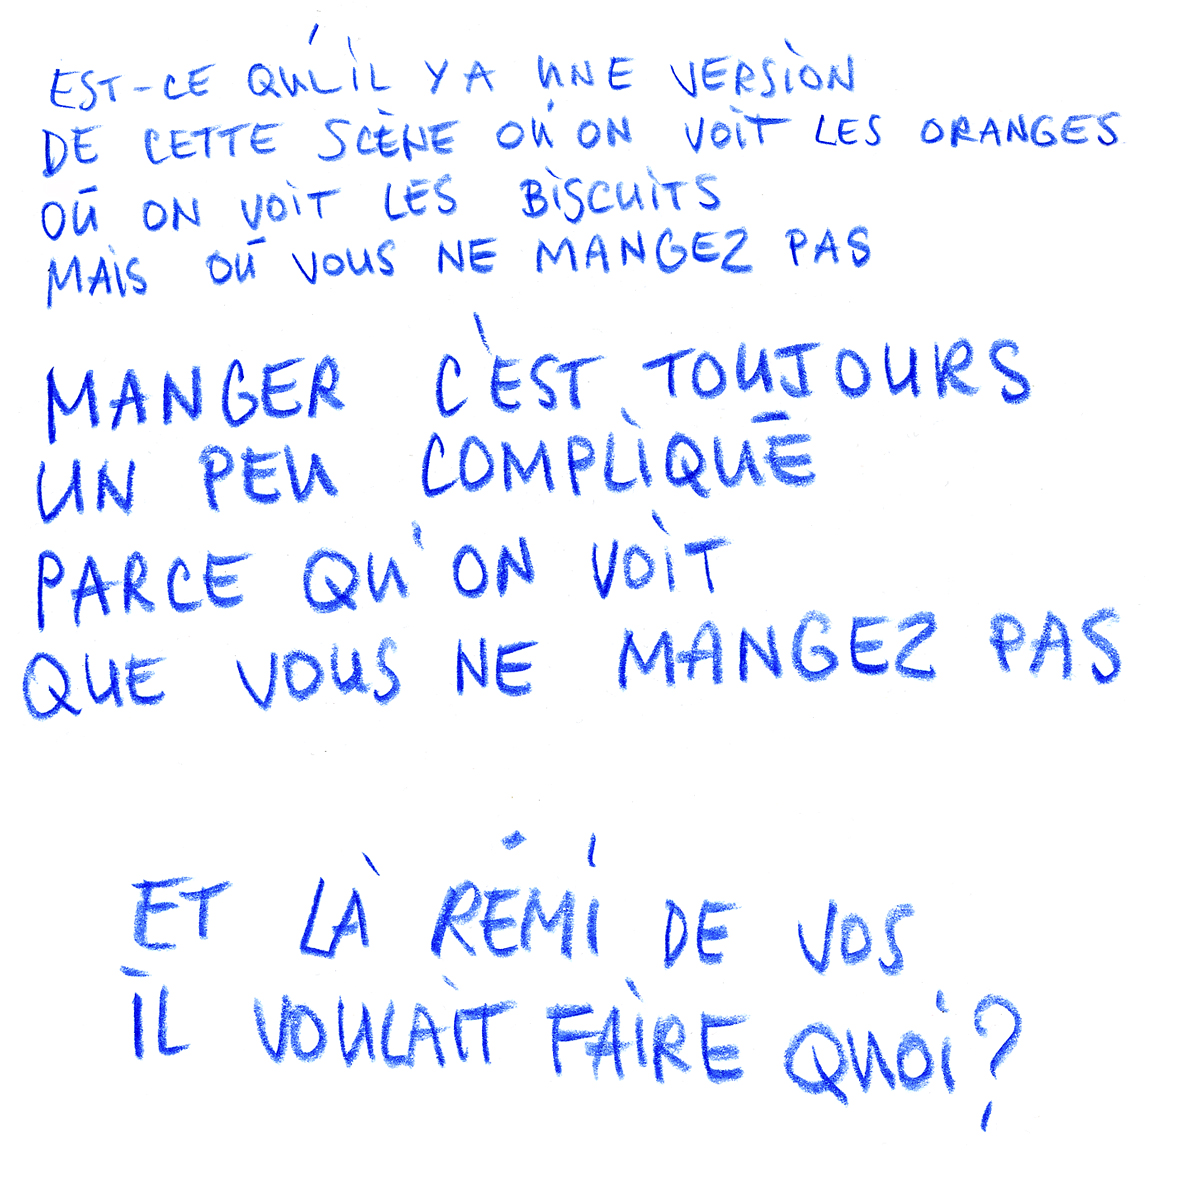 EST-CE QU'IL Y A UNE VERSION
DE CETTE SCÈNE OÙ ON VOIT LES ORANGES
OÙ ON VOIT LES BISCUITS
MAIS OÙ VOUS NE MANGEZ PAS
MANGER C'EST TOUJOURS
UN PEU COMPLIQUÉ
PARCE QU'ON VOIT
QUE VOUS NE MANGEZ PAS
ET LÀ RÉMI DE VOS
IL VOULAIT FAIRE QUOI?